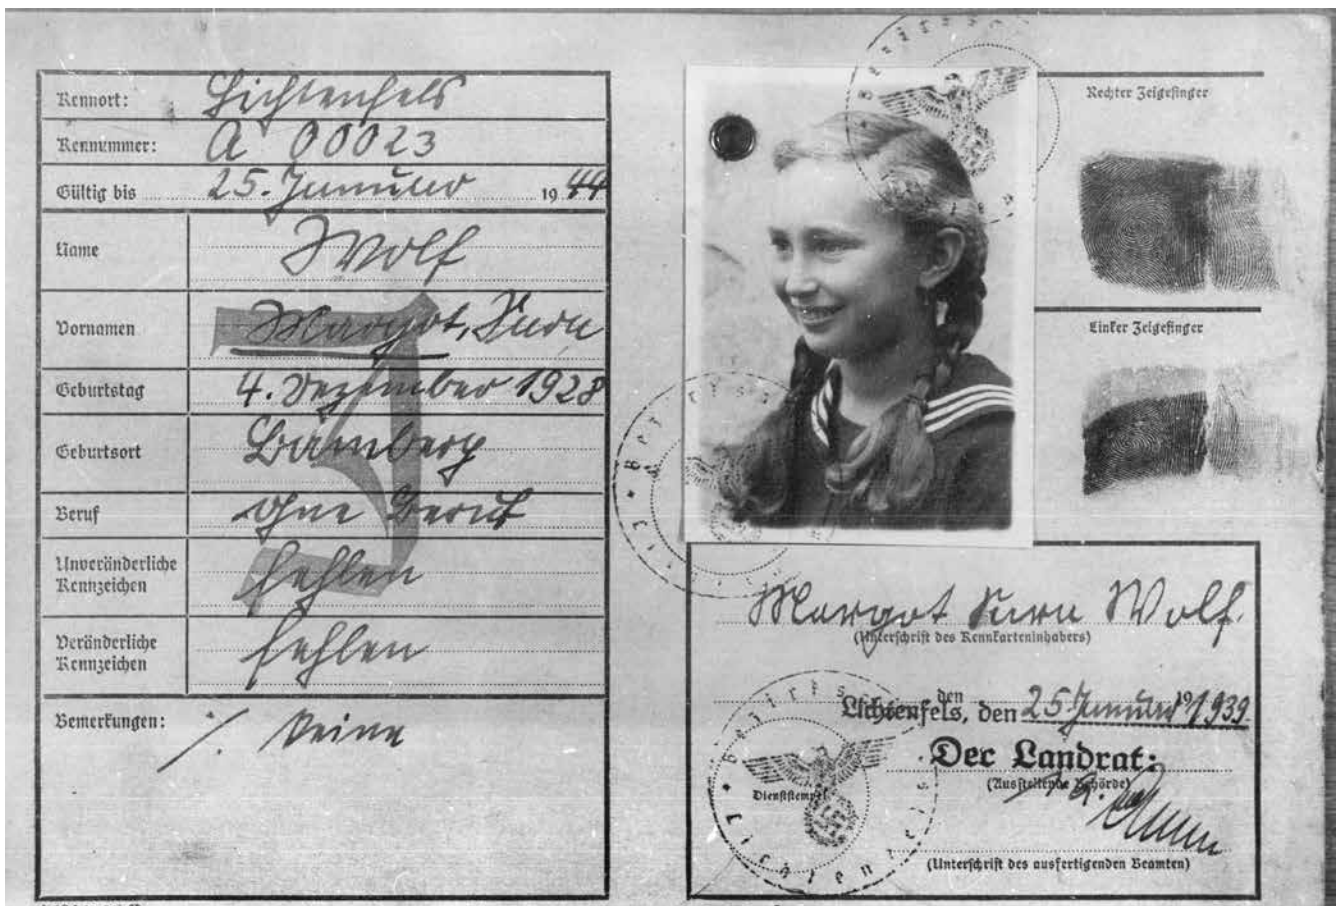 Kennort: Lichtenfels
Kennummer: A 00023
Gültig bis 25. Januar 1944
Name Wolf
Vornamen Margot, Sara
Geburtstag 4. Dezember 1928
Geburtsort Bamberg
Beruf ohne Beruf
Unveränderliche
Kennzeichen fehlen
Veränderliche
Kennzeichen fehlen
Bemerkungen: ./. keine
J
Rechter Zeigefinger
Linker Zeigefinger
Margot Sara Wolf.
(Unterschrift des Kennkarteninhabers)
den
Lichtenfels, den 25 Januar 19 1939.
Der Landrat:
(Ausstellende Behörde)
Dienststempel
Bezirksamt Lichtenfels
(Unterschrift des ausfertigenden Beamten)